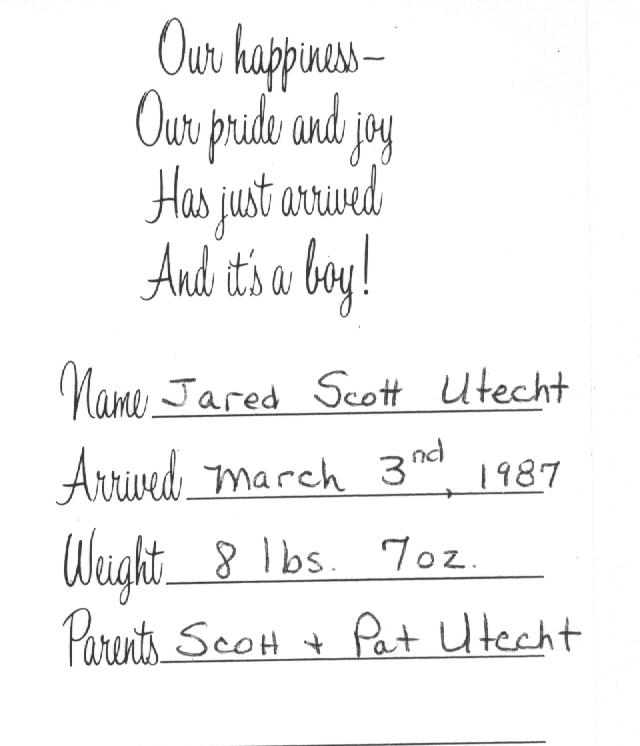 Our happiness—
Our pride and joy
Has just arrived
And it's a boy!
Name Jared Scott Utecht
Arrived March 3nd, 1987
Weight 8 lbs. 7oz.
Parents Scott + Pat Utecht